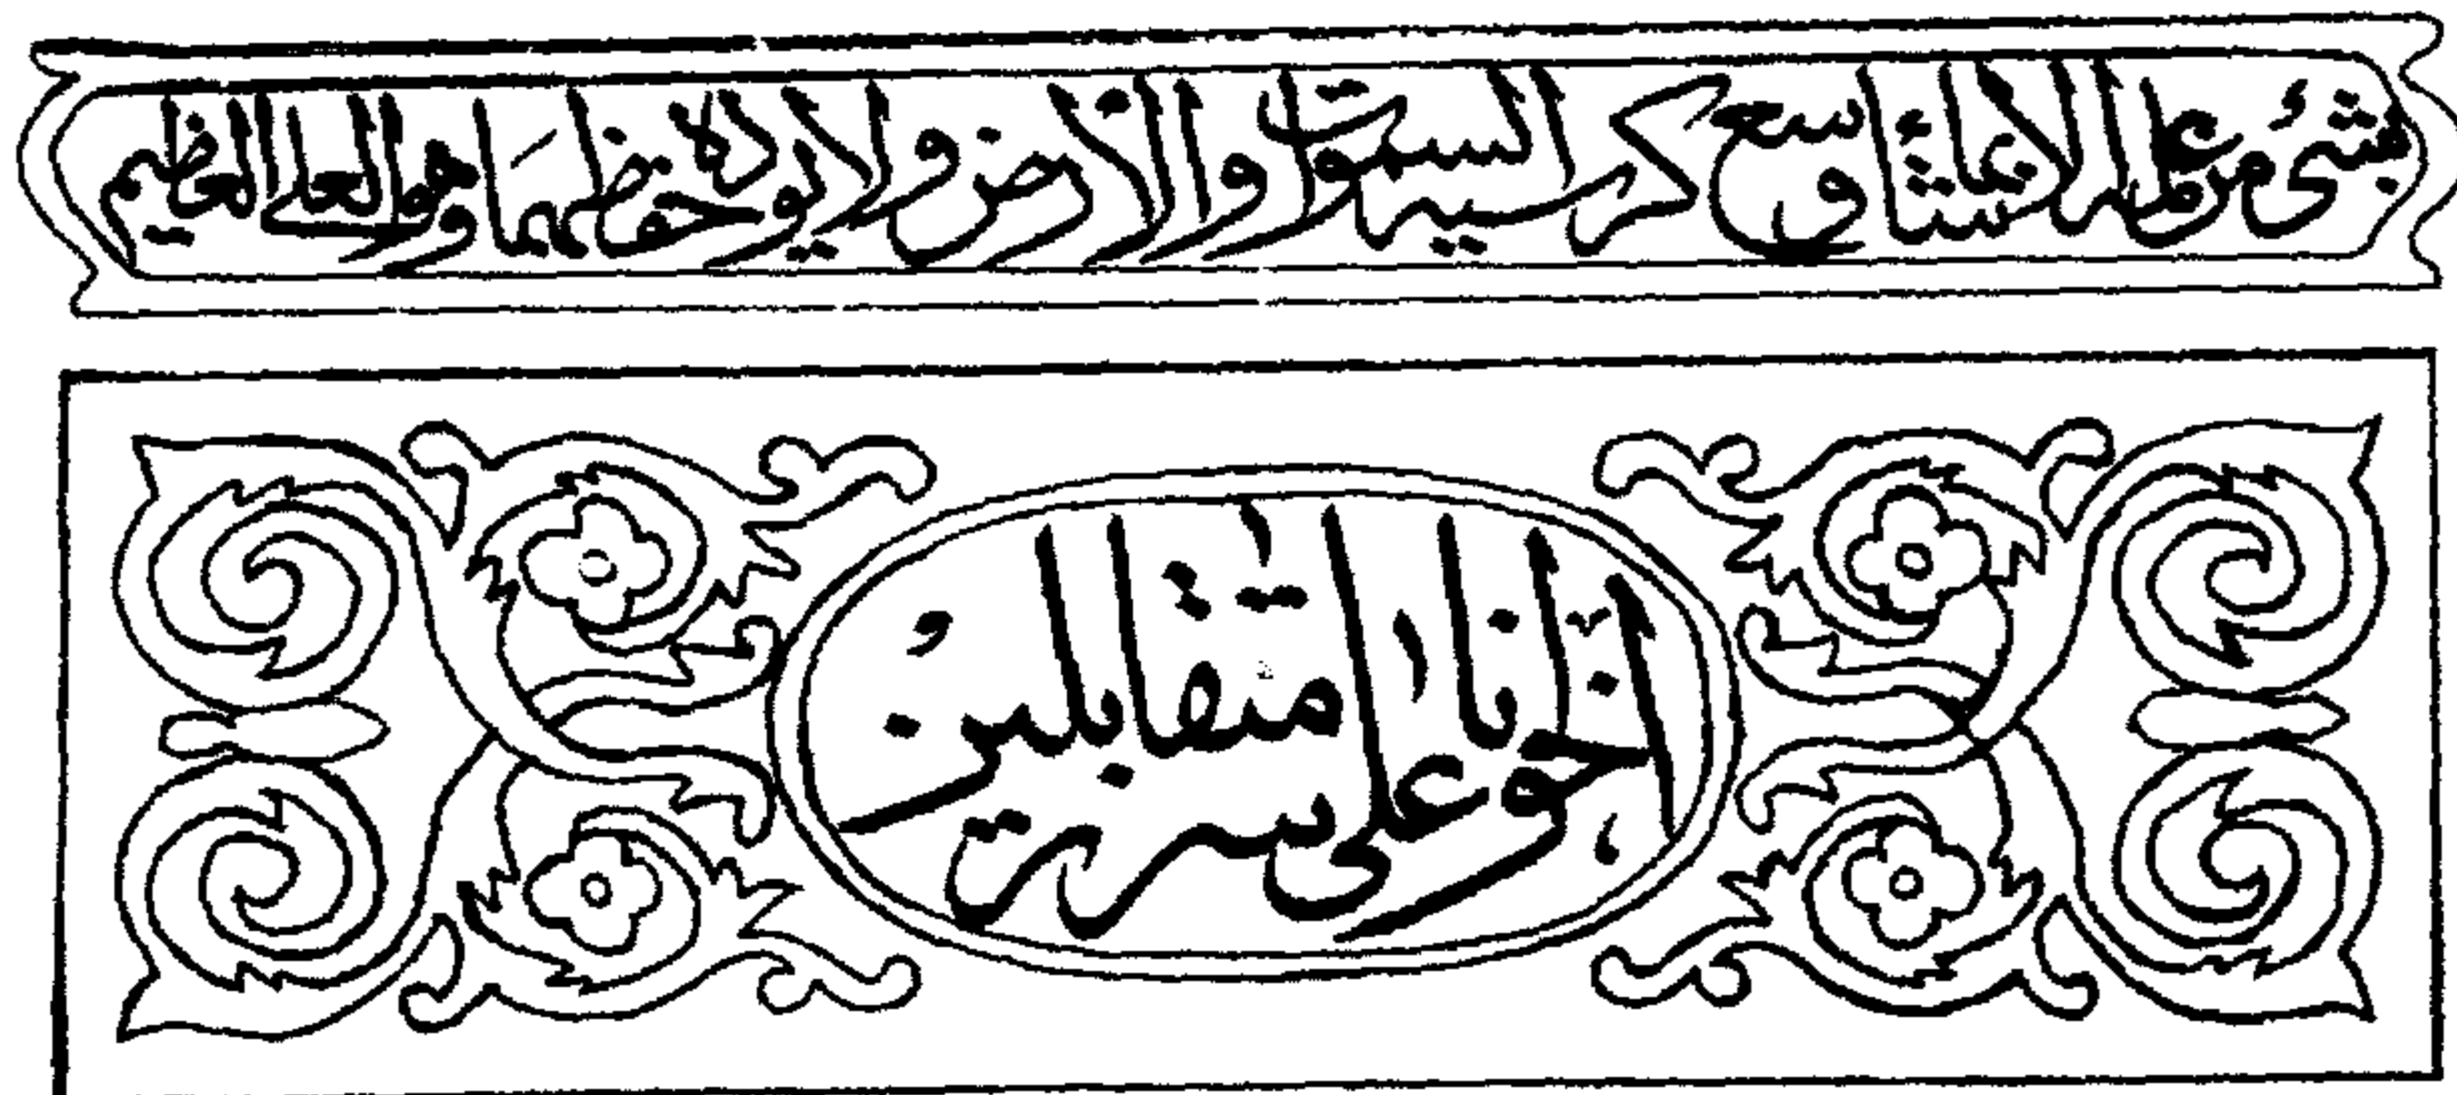 بشئ من علمه الا بما شاء وسع كرسيه السموات والارض ولا يوده حفظهما وهو العلي العظيم
اخوانا على سرر متقابلين